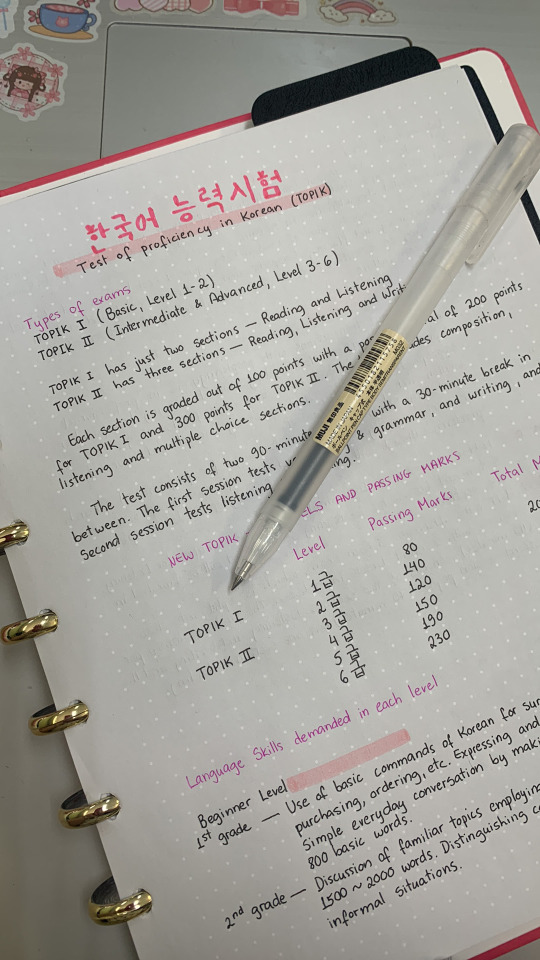 한국어 능력시험
Test of proficiency in Korean (TOPIK)
Types of exams
TOPIK I (Basic, Level 1-2)
TOPIK II (Intermediate & Advanced, Level 3-6)
TOPIK I has just two sections – Reading and Listening
TOPIK II has three sections – Reading, Listening and
Each section is graded out of 100 points with a of 200 points
for TOPIK I and 300 points for TOPIK II. The composition,
listening and multiple choice sections.
The test consists of two 90-minute with a 30-minute break in
between. The first session tests & grammar, and writing, and
second session tests listening
NEW TOPIK AND PASSING MARKS
Level Passing Marks Total
TOPIK I 1급 80
2급 140
TOPIK II 3급 120
4급 150
5급 190
6급 230
Language Skills demanded in each level
Beginner Level
1st grade — Use of basic commands of Korean for
purchasing, ordering, etc. Expressing and
Simple everyday conversation by
800 basic words.
2nd grade — Discussion of familiar topics employing
1500 ~ 2000 words. Distinguishing
informal situations.
MUJI 無印良品